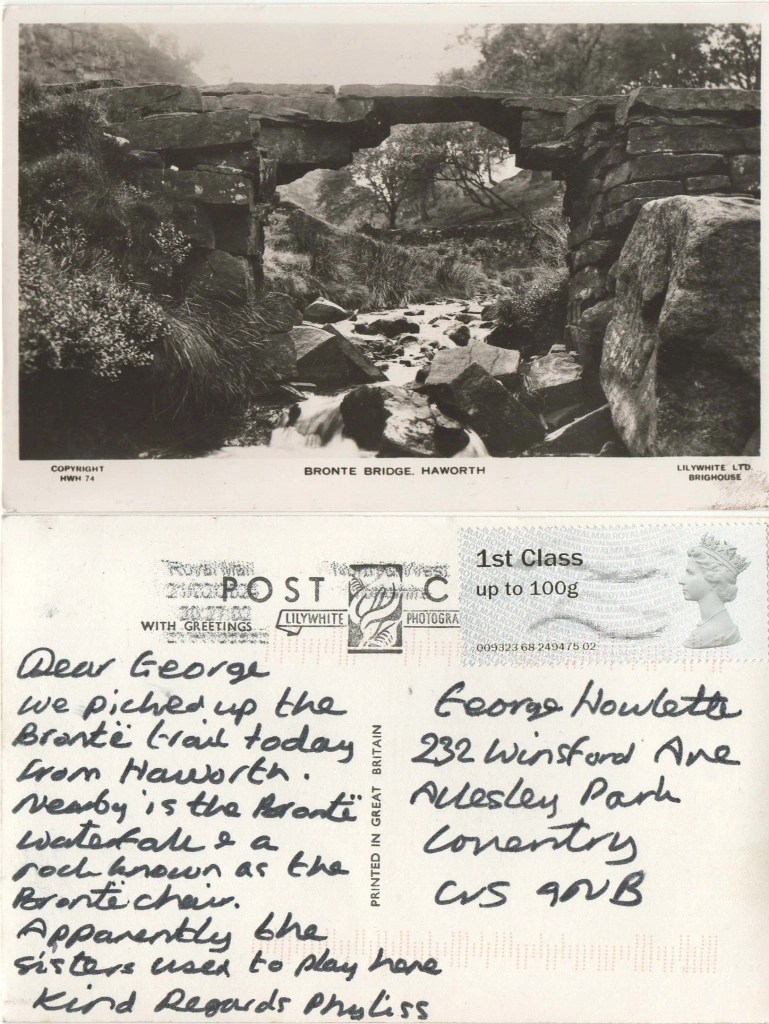 COPYRIGHT
HWH 74
BRONTE BRIDGE, HAWORTH
LILYWHITE LTD.
BRIGHOUSE
Royal Mail
POST C
WITH GREETINGS
LILYWHITE
PHOTOGRA
1st Class
up to 100g
009323 68 249475 02
Dear George
we picked up the
Brontë trail today
from Haworth.
Nearby is the Brontë
waterfall & a
rock known as the
Brontë chair.
Apparently the
sisters used to play here
Kind Regards Phyliss
PRINTED IN GREAT BRITAIN
George Howlette
232 Winsford Ave
Allesley Park
Coventry
CV5 9NB